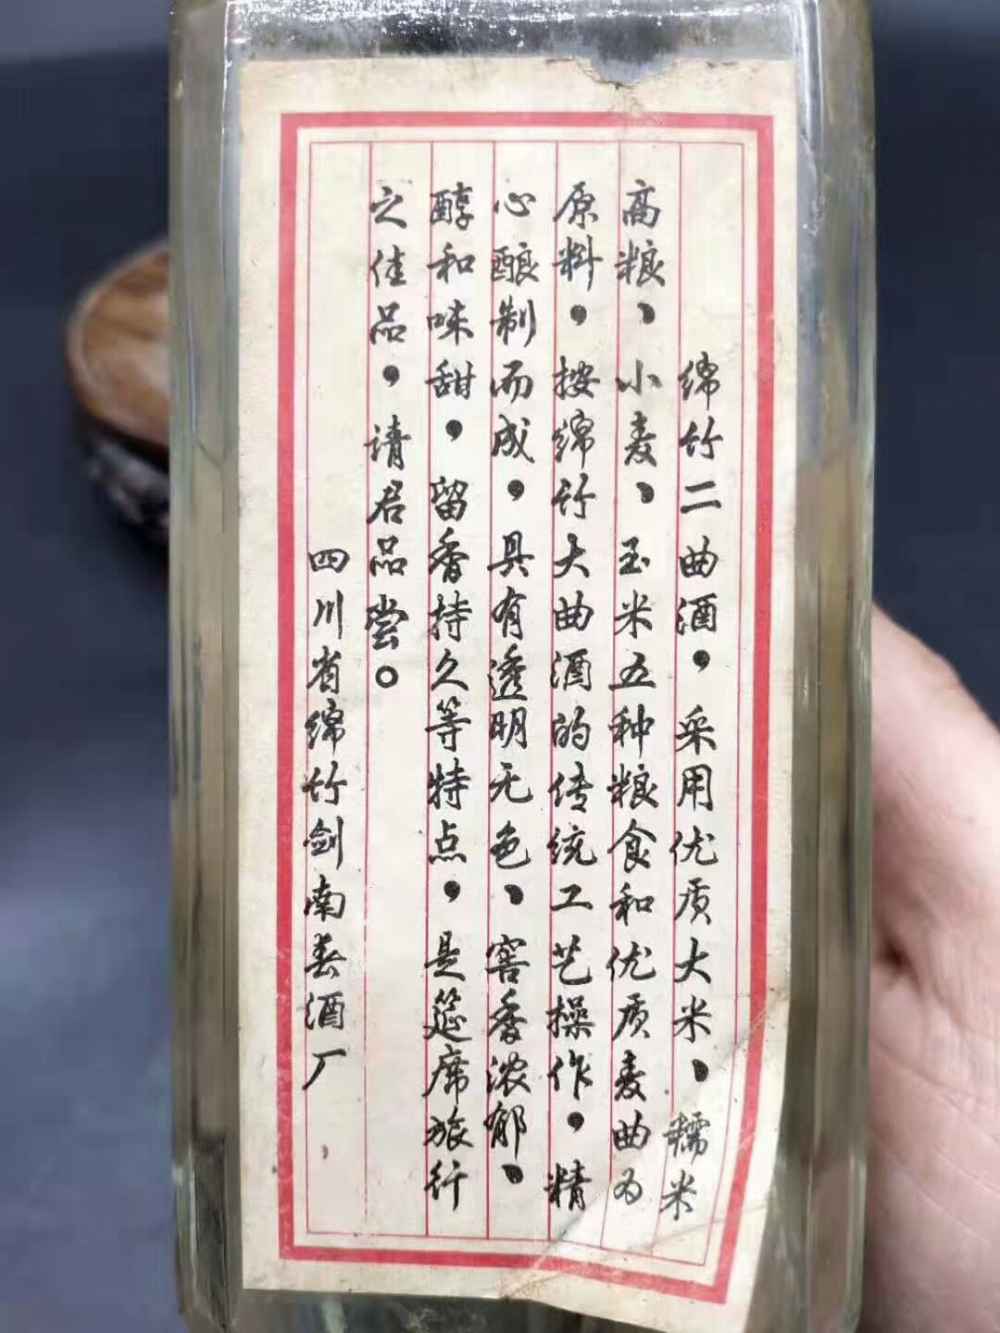 绵竹二曲酒，采用优质大米、糯米
高粮、小麦、玉米五种粮食和优质麦曲为
原料，按绵竹大曲酒的传统工艺操作，精
心酿制而成，具有透明无色、窖香浓郁、
醇和味甜，留香持久等特点，是筵席旅行
之佳品，请君品尝。
四川省绵竹剑南春酒厂